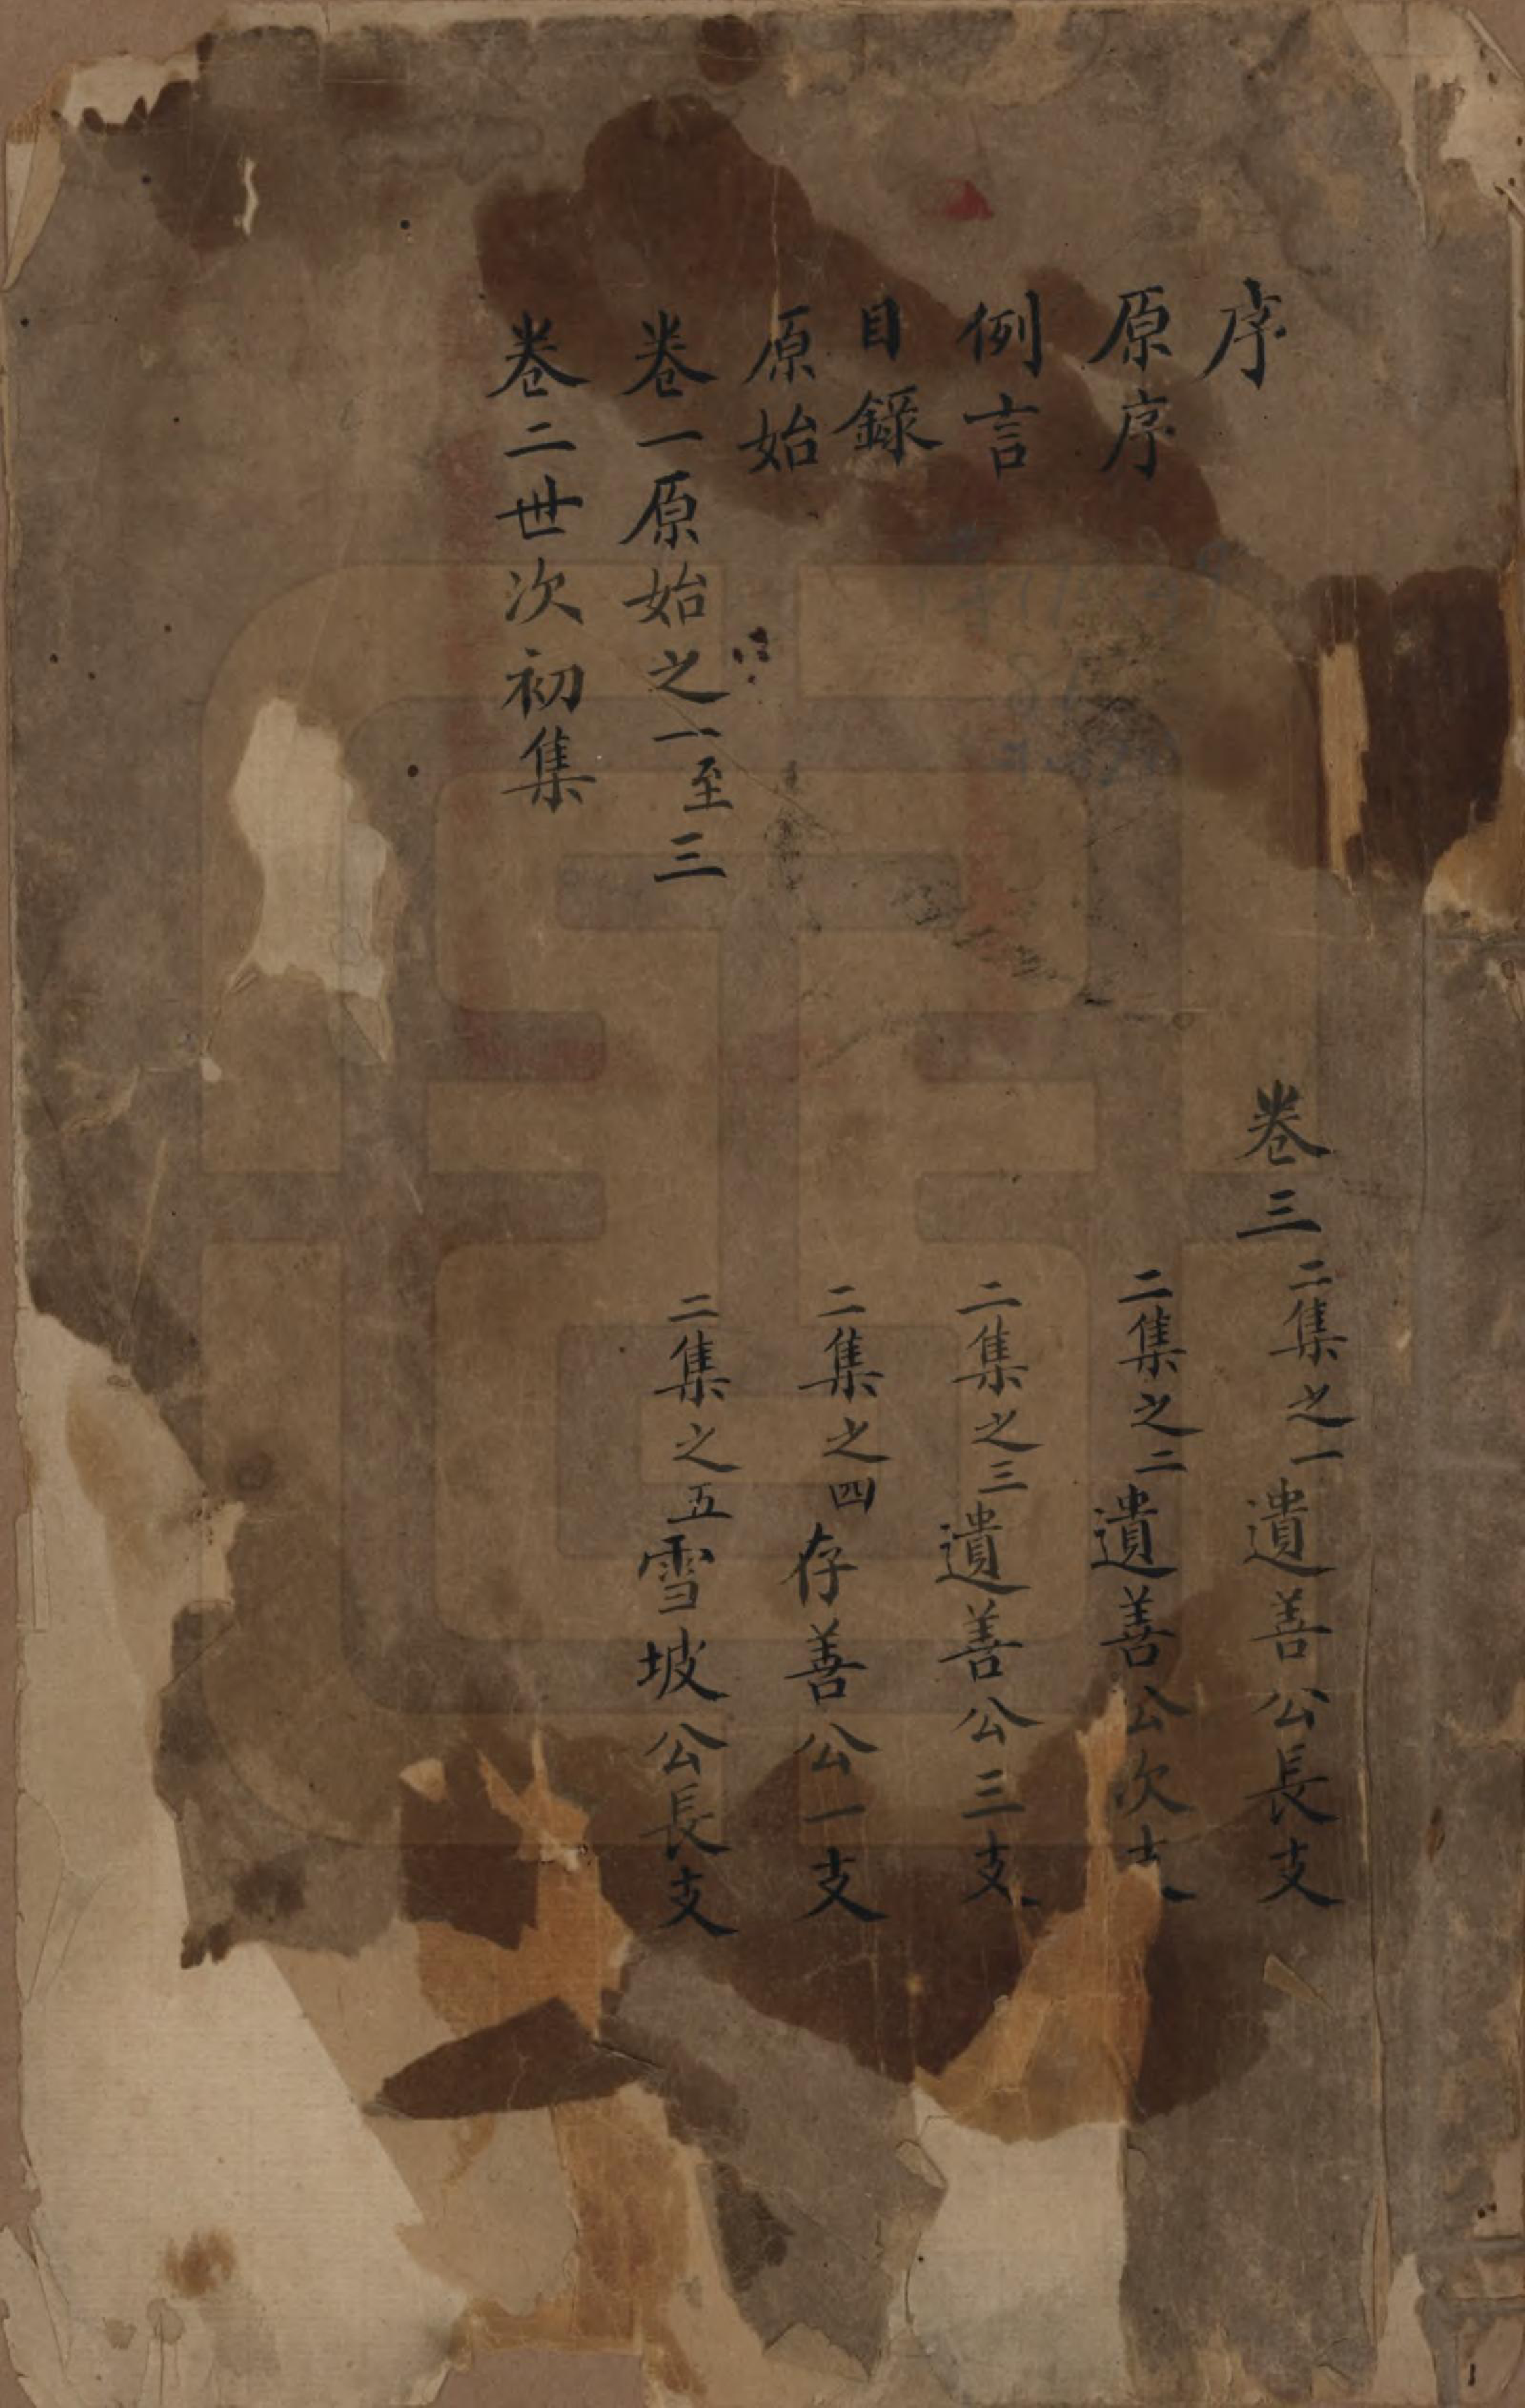 序
原序
例言
目錄
原始
卷一原始之一至三
卷二世次初集
卷三二集之一遺善公長支
二集之二遺善公次支
二集之三遺善公三支
二集之四存善公一支
二集之五雪坡公長支